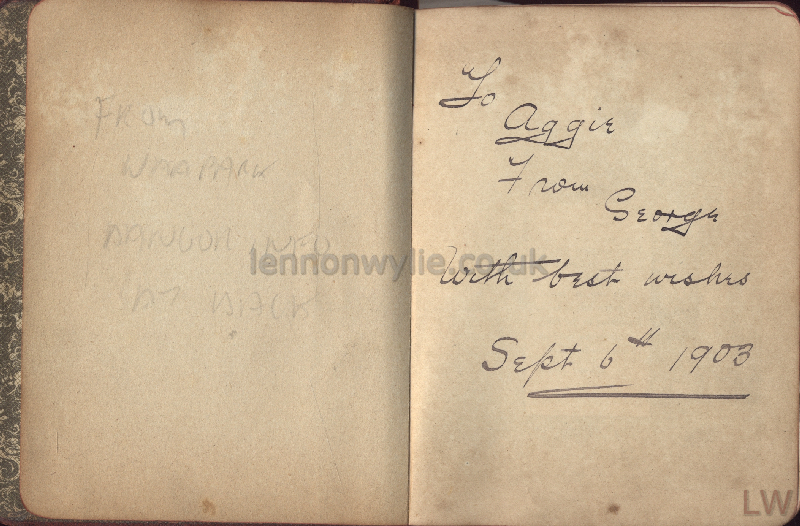 From
To
Aggie
From
George
lennonwylie.co.uk
With best wishes
Sept 6th 1903
LW